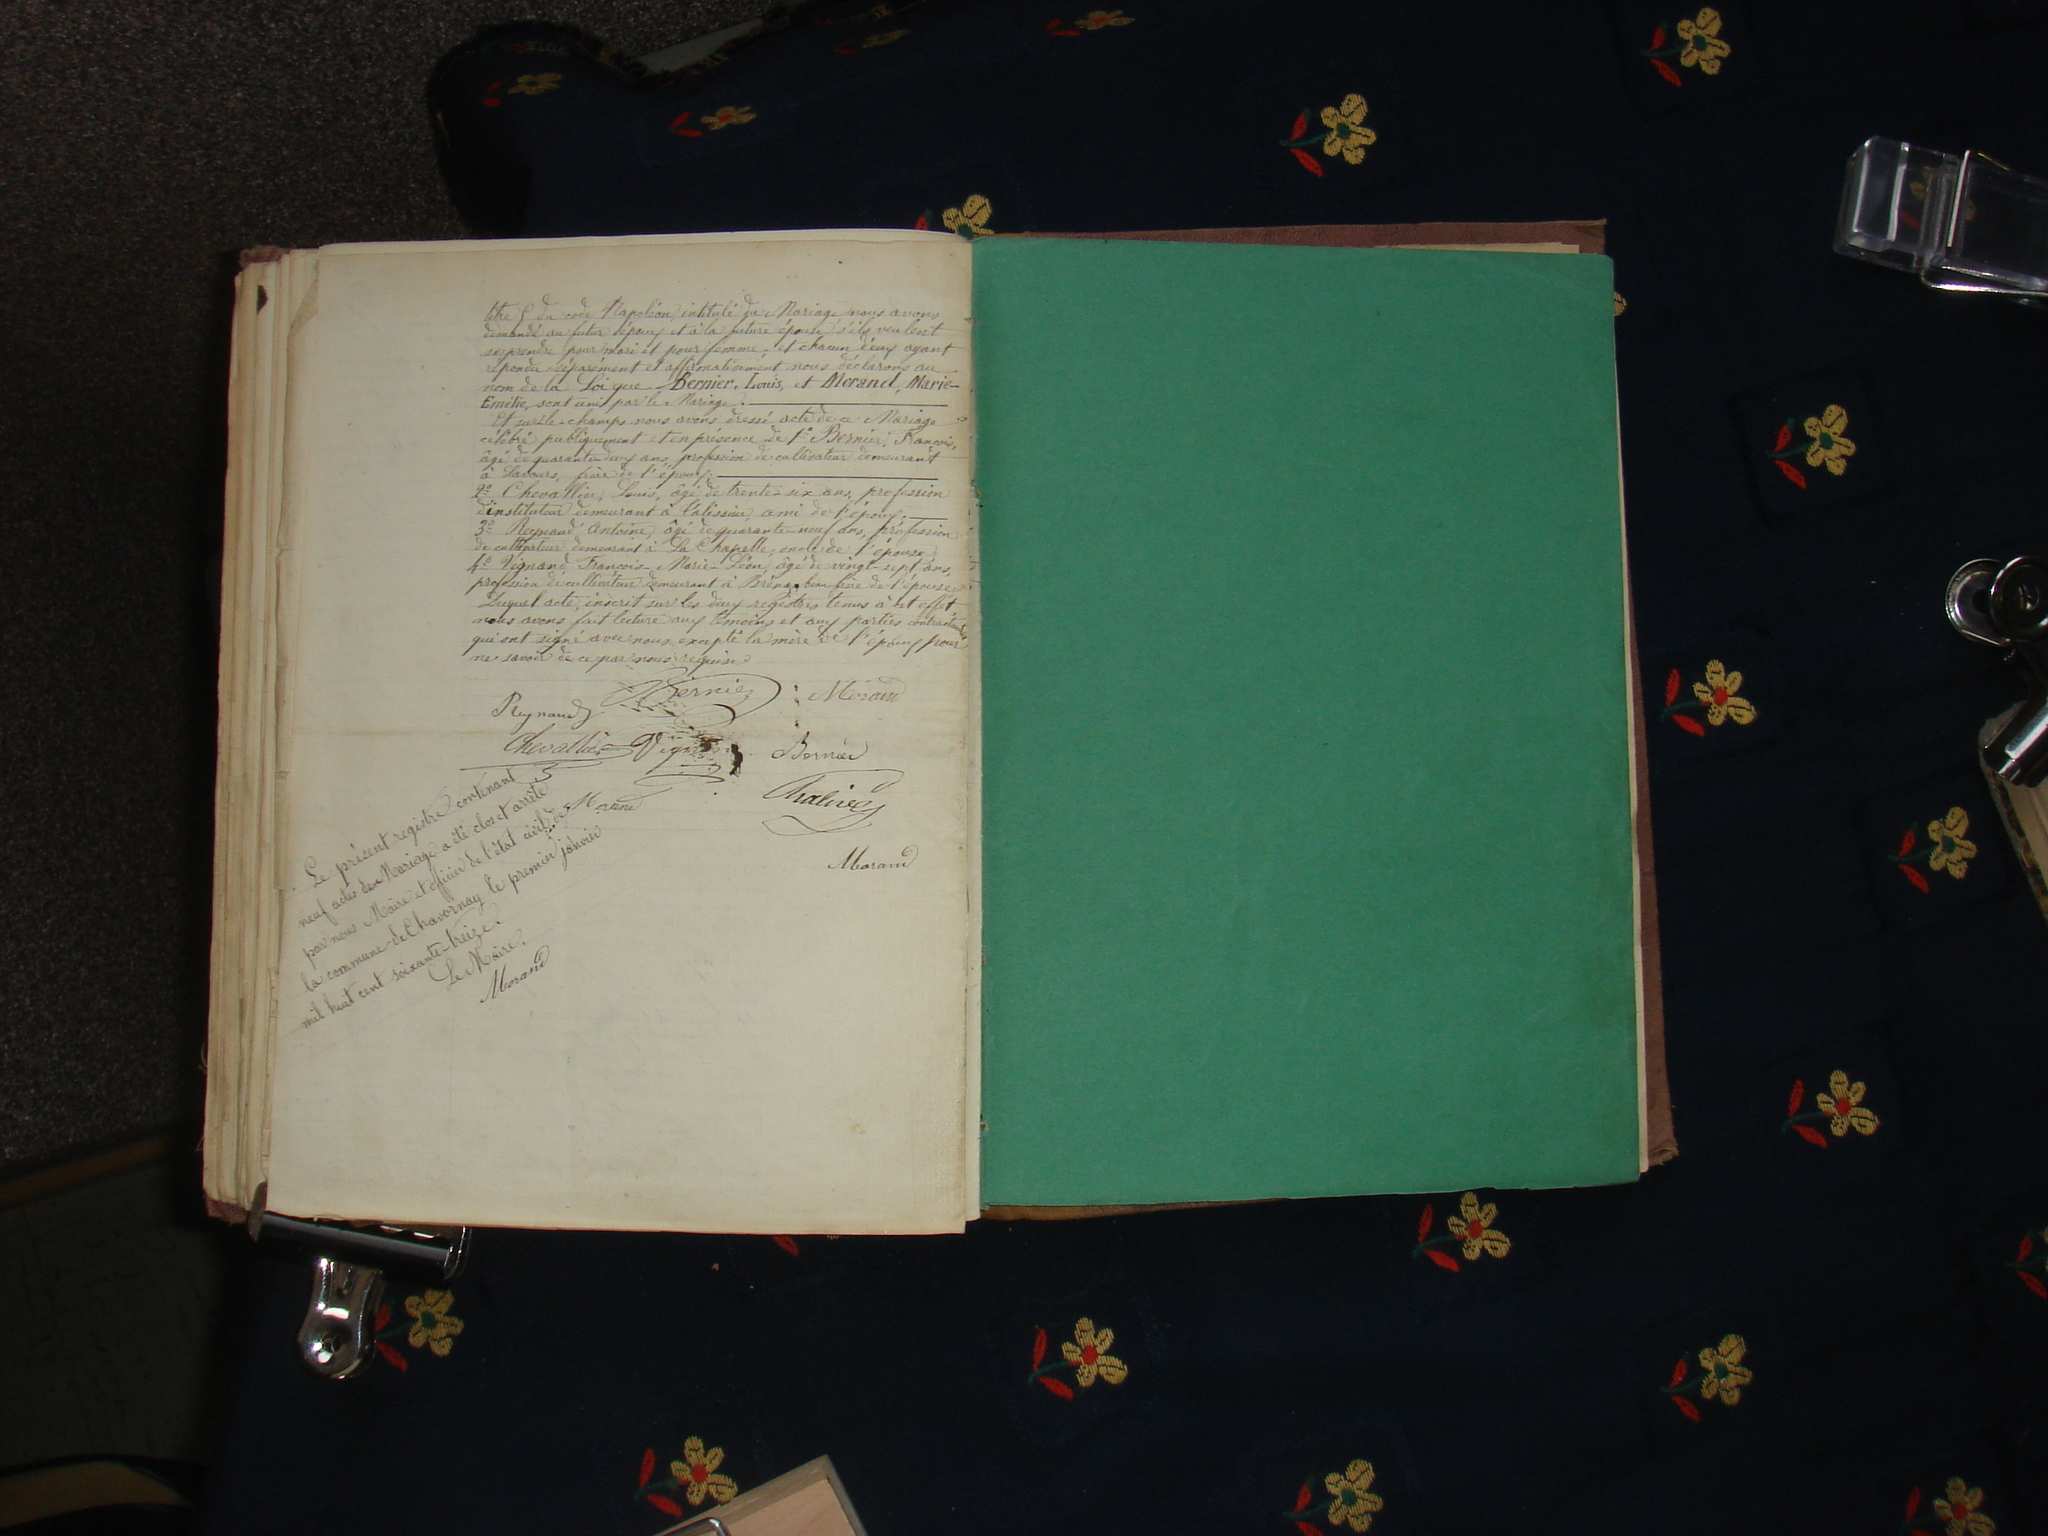 titre 5 du code Napoléon, intitulé du Mariage, nous avons
demandé au futur époux et à la future épouse s'ils veulent
se prendre pour mari et pour femme, et chacun d'eux ayant
répondu séparément et affirmativement nous déclarons au
nom de la Loi que Bernier, Louis, et Morand, Marie-
Emélie, sont unis par le Mariage.
Et sur le champs nous avons dressé acte de ce Mariage
célébré publiquement et en présence de 1° Bernier, François,
âgé de quarante-deux ans, profession de cultivateur demeurant
à Lavours, frère de l'époux.
2° Chevallier, Louis, âgé de trente-six ans, profession
d'instituteur demeurant à Talissieu ami de l'époux.
3° Reynaud Antoine, âgé de quarante-neuf ans, profession
de cultivateur demeurant à La Chapelle, oncle de l'épouse
4° Vignand, François-Marie-Léon, âgé de vingt-sept ans,
profession de cultivateur demeurant à Brénaz, beau frère de l'épouse.
Lequel acte, inscrit sur les deux registres tenus à cet effet
nous avons fait lecture aux témoins et aux parties contractantes
qui ont signé avec nous, excepté la mère de l'époux pour
ne savoir de ce par nous requise
Bernier Morand
Reynaud
Chevallier Bernier
Morand
Morand
Le présent registre contenant
neuf actes de Mariage a été clos et arrêté
par nous Maire et officier de l'état civil de
la commune de Chavornay le premier janvier
mil huit cent soixante-treize.
Le Maire,
Morand